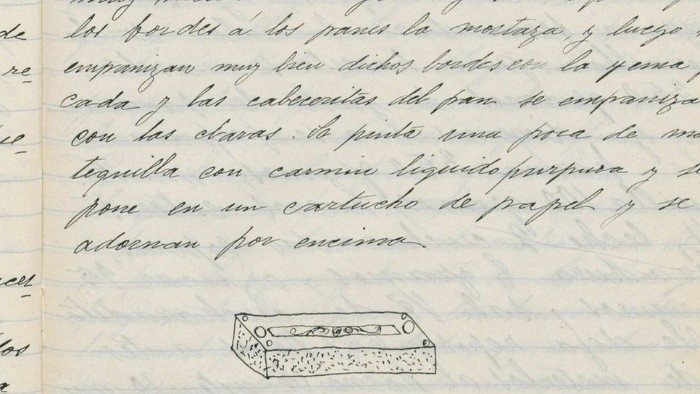 los bordes á los panes la mostaza, y luego
de
empanizan muy bien dichos bordes con la yema
re
cada y las cabeceritas del pan se empaniza
con las claras. Se pinta una poca de ma
tequilla con carmin liquido purpura y se
pone en un cartucho de papel y se
adornan por encima
los
a